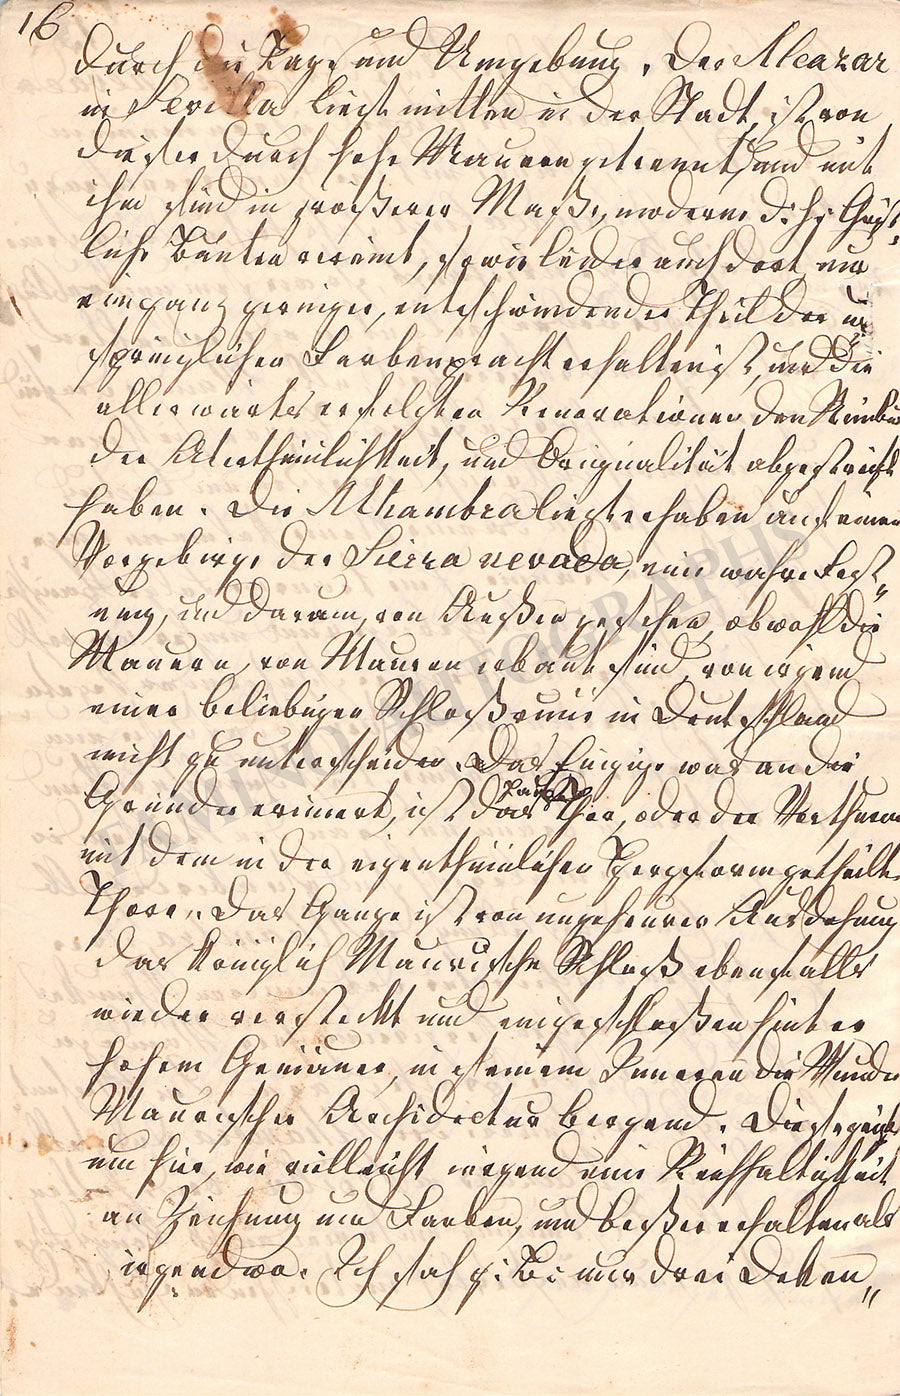 16
durch die Lage und Umgebung. Der Alcazar
in Sevilla liegt mitten in der Stadt, ist von
dieser durch hohe Mauern getrennt, und mit
ihm sind in größerer Maße, moderne d. h. Christ-
liche Bauten vereint, sowie leider auch dort nur
ein ganz geringer, entschwindender Theil der ur
sprünglichen Farbenpracht erhalten ist, und die
allerwärts erfolgten Renovationen den Nimbus
der Alterthümlichkeit, und Originalität abgestreift
haben. Die Alhambra liegt erhaben auf einem
Vorgebirge der Sierra nevada, eine wahre Fest"
ung, und darum, von Außen gesehen, obwohl die
Mauern, von Mauren erbaut sind, von irgend
einer beliebigen Schloßruine in Deutschland
nicht zu unterscheiden. Das Einzige was an die
Gründer erinnert, ist das Thor, oder der Vorthurm
mit dem in der eigenthümlichen getheilten
Thore. Das Ganze ist von ungeheurer Ausdehnung
das königlich Maurische Schloß ebenfalls
wieder versteckt und eingeschloßen hinter
hohem Gemäuer, in seinem Inneren die Wunder
Maurischer Architectur bergend. Diese
nun hier, wie vielleicht nirgend eine Reichhaltigkeit
an Zeichnung und Farben, und beßer erhalten als
irgendwo. Ich sah z. B. nur drei Decken,,
FINE AUTOGRAPHS